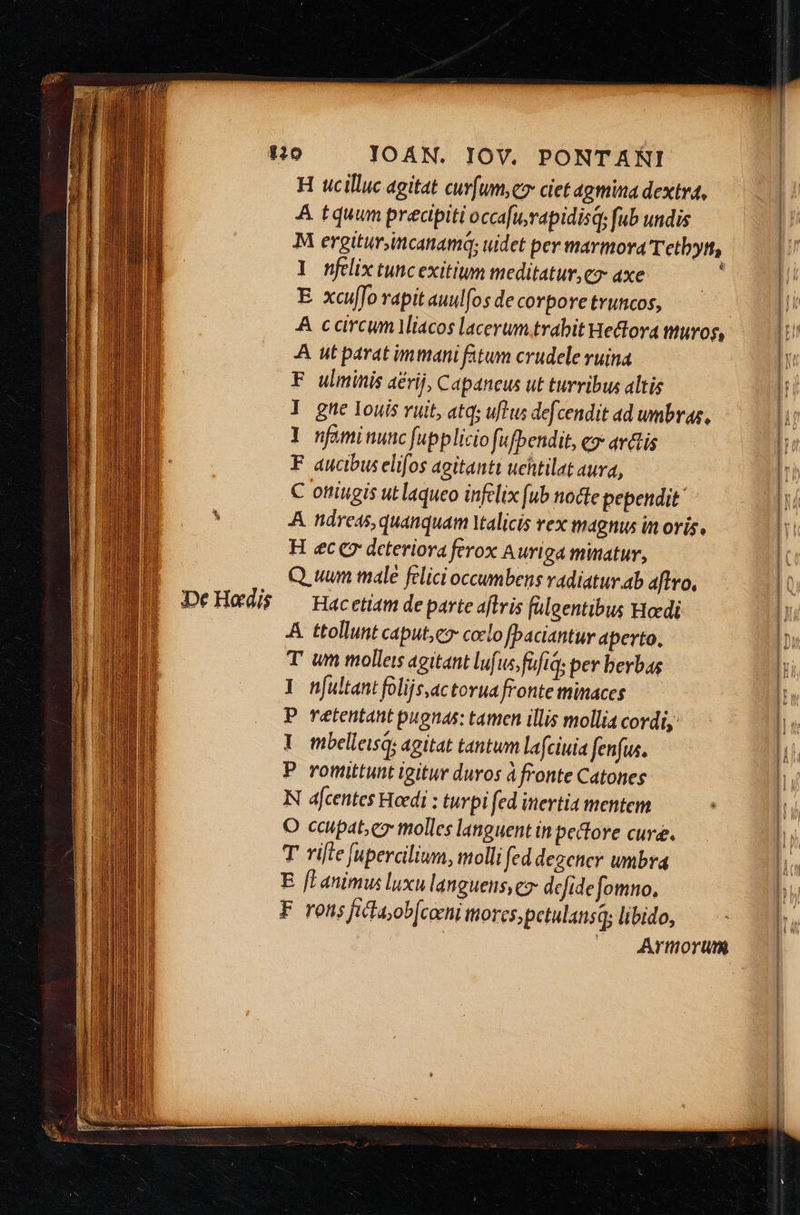 120 IOAN. IOV. PONTANI
H ucilluc agitat curſum, & ciet agmina dextra,
A tquum præcipiti occaſu, rapidisq; ſub undis
M ergitur, incanamq; uidet per marmora Tethyn,
I nfelix tunc exitium meditatur, & axe
E xcuſſo rapit auulſos de corpore truncos,
A c circum Iliacos lacerum trahit Hectora muros,
A ut parat immani fatum crudele ruina
F ulminis aërij, Capaneus ut turribus altis
I gne Iouis ruit, atq; uſtus deſcendit ad umbras,
I nfami nunc ſupplicio ſuſpendit, & arctis
F aucibus eliſos agitanti uentilat aura,
C oniugis ut laqueo infelix ſub nocte pependit
A ndreas, quanquam Italicis rex magnus in oris.
H æc & deteriora ferox Auriga minatur,
Q uum male felici occumbens radiatur ab aſtro.
De Hœdis Hac etiam de parte aſtris fulgentibus Hœdi
A ttollunt caput, & cœlo ſpaciantur aperto.
T um molleis agitant luſus, fuſiq; per herbas
I nſultant folijs, ac torua fronte minaces
P rætentant pugnas: tamen illis mollia cordi,
I mbelleisq; agitat tantum laſciuia ſenſus.
P romittunt igitur duros à fronte Catones
N aſcentes Hœdi : turpi ſed inertia mentem
O ccupat, & molles languent in pectore curæ.
T riſte ſupercilium, molli ſed degener umbra
E ſt animus luxu languens, & deſide ſomno.
F rons ficta, obſcœni mores, petulansq; libido,
Armorum